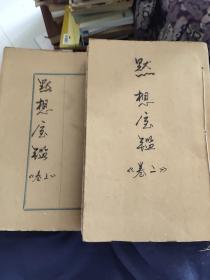 默想宝鑑
《卷二》
默想宝鑑
《卷上》